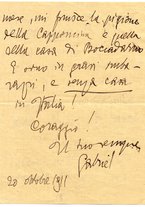 mese, mi finisce la pigione
della Capponcina e quella
della casa di Boccadarno
E sono in gravi imba-
razzi, e senza casa
in Italia!
Coraggio!
Il tuo sempre
Gabriel
20 ottobre 1911